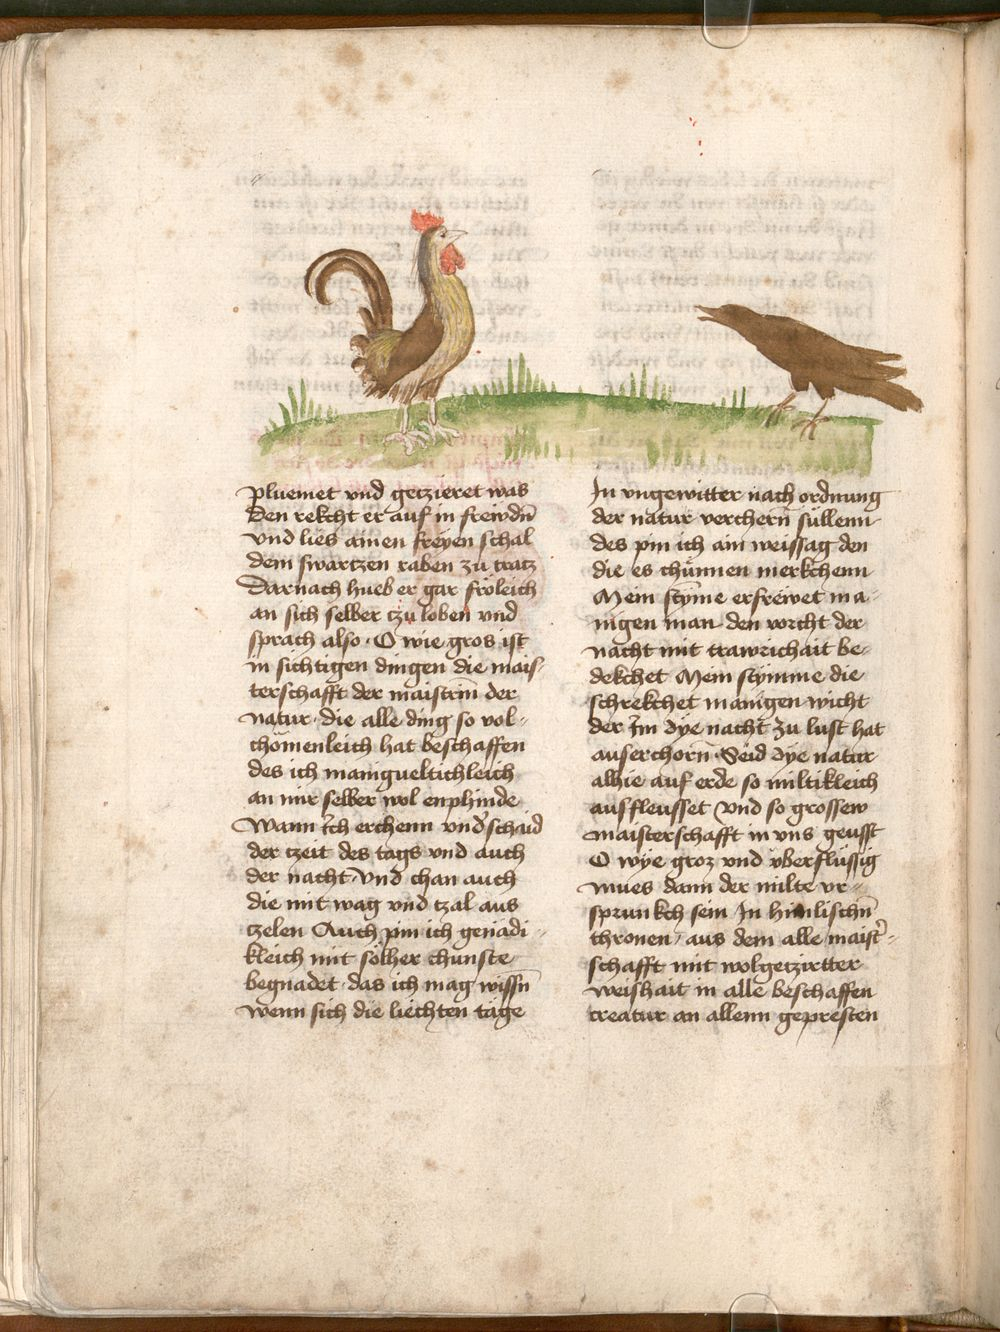 pluemet vnd geczieret was
Den rekcht er auf in frewdn̄
vnd lies ainen freyen schal
dem swartzen raben zu tratz
Darnach hueb er gar fröleich
an sich selber czu loben vnd
sprach also · O wie gros ist
in sichtigen dingen die mais-
terschafft der maistrin̄ der
natur · die alle ding so vol-
chömenleich hat beschaffen
des ich manigueltichleich
an mir selber wol enphinde
Wann Ich erchenn vnd̓schaid
der czeit des tags vnd auch
der nacht · Vnd chan auch
die mit wag vnd czal aus
tzelen Auch pm ich genadi-
kleich mit sölher chunste
begnadet · das ich mag wissn̄
wenn sich die liechten täge
In vngewitter nach ordnung
der natur verchern̄ süllenn
des pin ich ain weissag den
die es chünnen merkchenn
Mein stȳme erfrewet ma-
nigen man den vorcht der
nacht mit trawrichait be-
dekchet Mein stymme die
schrekchet manigen wicht
der Im dye nacht Zu lust hat
auserchorn̄ · Seid dye natur
alhie auf erde so miltikleich
ausfleusset Vnd so grossew
maisterschafft in vns geusst
O wye groz vnd vberflüssig
mues dann der milte vr-
sprunkch sein In himlischn̄
thronen / aus dem alle maist̓-
schafft mit wolgeczirtter
weishait in alle beschaffen
creatur an allenn gepresten